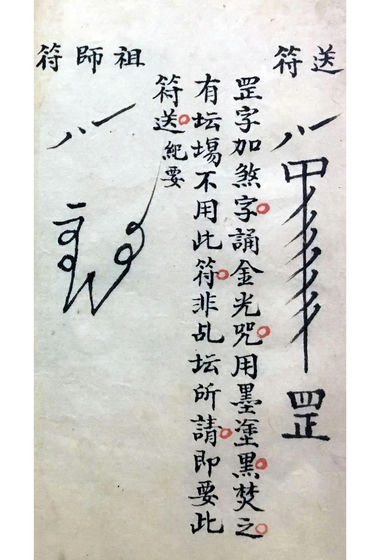 送符
甲
罡
罡字加煞字誦金光咒用墨塗黑焚之
有坛塲不用此符非乩坛所請即要此
符送紀要
祖師符